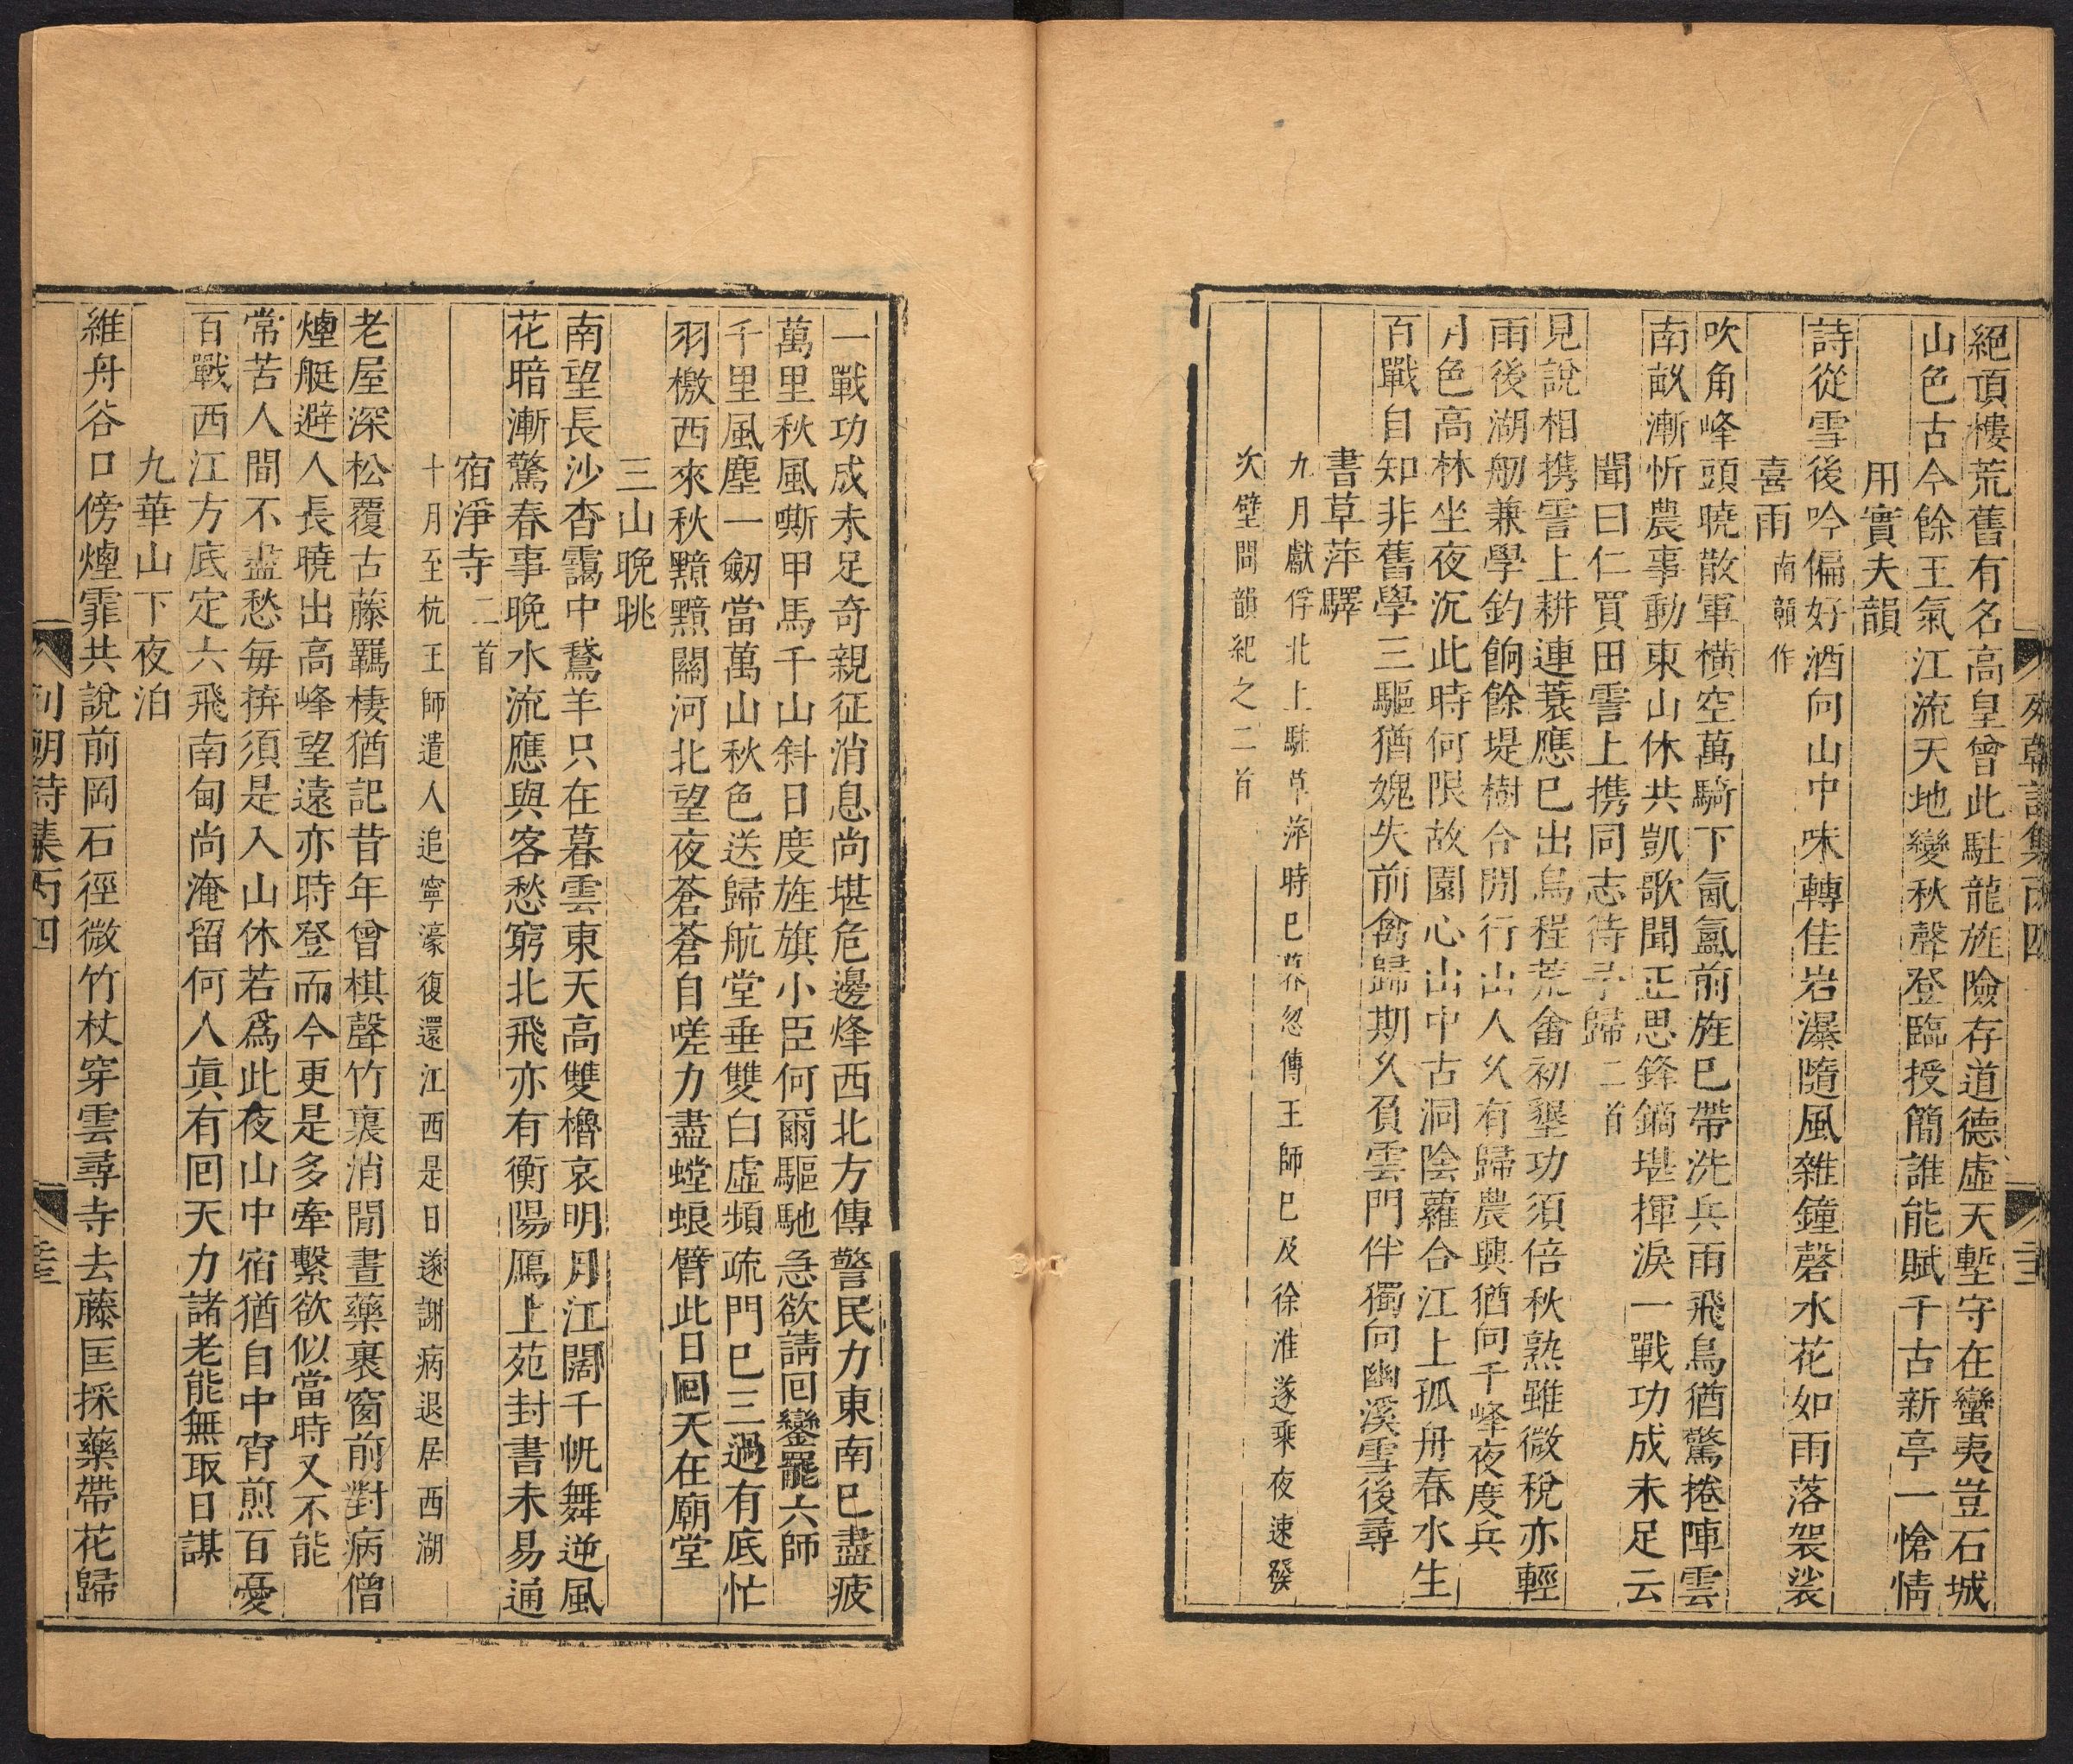 列朝詩集丙四
絕頂樓荒舊有名高皇曾此駐龍旌險存道德虛天塹守在蠻夷豈石城
山色古今餘王氣江流天地變秋聲登臨授簡誰能賦千古新亭一愴情
用實夫韻
詩從雪後吟偏好酒向山中味轉佳岩瀑隨風雜鐘磬水花如雨落袈裟
喜雨南贛作
吹角峰頭曉散軍橫空萬騎下氤氳前旌已帶洗兵雨飛鳥猶驚捲陣雲
南畝漸忻農事動東山休共凱歌聞正思鋒鏑堪揮淚一戰功成未足云
聞曰仁買田霅上攜同志待予歸二首
見說相攜霅上耕連蓑應已出烏程荒畬初墾功須倍秋熟雖微稅亦輕
雨後湖舠兼學釣餉餘堤樹合閒行山人久有歸農興猶向千峰夜度兵
月色高林坐夜沉此時何限故園心山中古洞陰蘿合江上孤舟春水生
百戰自知非舊學三驅猶媿失前禽歸期久負雲門伴獨向幽溪雪後尋
書草萍驛
九月獻俘北上駐草萍時已暮忽傳王師已及徐淮遂乘夜速發
次壁間韻紀之二首
一戰功成未足奇親征消息尚堪危邊烽西北方傳警民力東南已盡疲
萬里秋風嘶甲馬千山斜日度旌旗小臣何爾驅馳急欲請回鑾罷六師
千里風塵一劒當萬山秋色送歸航堂垂雙白虛頻疏門已三過有底忙
羽檄西來秋黯黯關河北望夜蒼蒼自嗟力盡螳螂臂此日回天在廟堂
三山晚眺
南望長沙杳靄中鵞羊只在暮雲東天高雙櫓哀明月江闊千帆舞逆風
花暗漸驚春事晚水流應與客愁窮北飛亦有衡陽鴈上苑封書未易通
宿淨寺二首
十月至杭王師遣人追寧濠復還江西是日遂謝病退居西湖
老屋深松覆古藤羈棲猶記昔年曾棋聲竹裏消閒晝藥裹窗前對病僧
煙艇避人長曉出高峰望遠亦時登而今更是多牽繫欲似當時又不能
常苦人間不盡愁每拚須是入山休若爲此夜山中宿猶自中宵煎百憂
百戰西江方底定六飛南甸尚淹留何人眞有回天力諸老能無取日謀
九華山下夜泊
維舟谷口傍煙霏共說前岡石徑微竹杖穿雲尋寺去藤匡採藥帶花歸
列朝詩集丙四